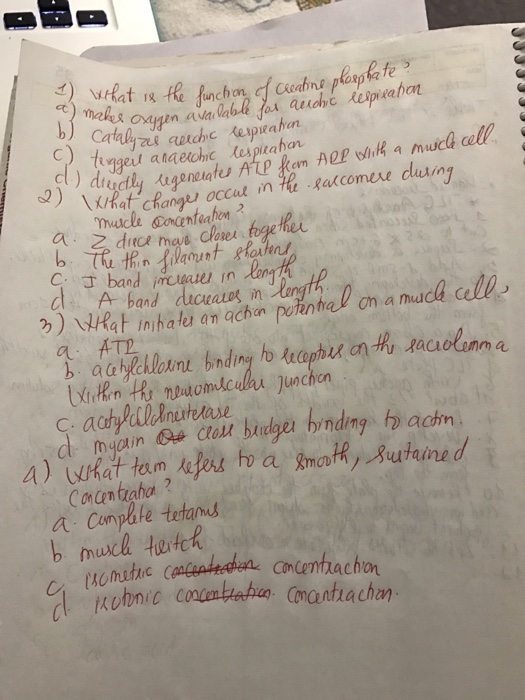 1) What is the function of Creatine phosphate?
a) makes oxygen available for aerobic respiration
b) Catalyzes aerobic respiration
c) triggers anaerobic respiration
d) directly regenerates ATP from ADP with a muscle cell
2) What changes occur in the sarcomere during
muscle concentration?
a. Z discs move closer together
b. The thin filament shortens
c. I band increases in length
d. A band decreases in length.
3) What initiates an action potential on a muscle cell?
a. ATP
b. acetylchloine binding to receptors on the sacrolemma
within the neuromuscular junction
c. acetylchlolinesterase
d. myosin cross bridges binding to actin.
4) What term refers to a smooth, sustained
Concentration?
a. Complete tetanus
b. muscle twitch
c. isometric concentration concentraction
d. isotonic concentration. Concentraction.